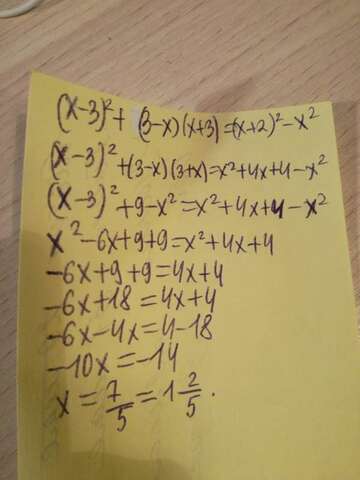 (x-3)²+(3-x)(x+3)=(x+2)²-x²
(x-3)²+(3-x)(3+x)=x²+4x+4-x²
(x-3)²+9-x²=x²+4x+4-x²
x²-6x+9+9=x²+4x+4
-6x+9+9=4x+4
-6x+18=4x+4
-6x-4x=4-18
-10x=-14
x=7/5=1 2/5.